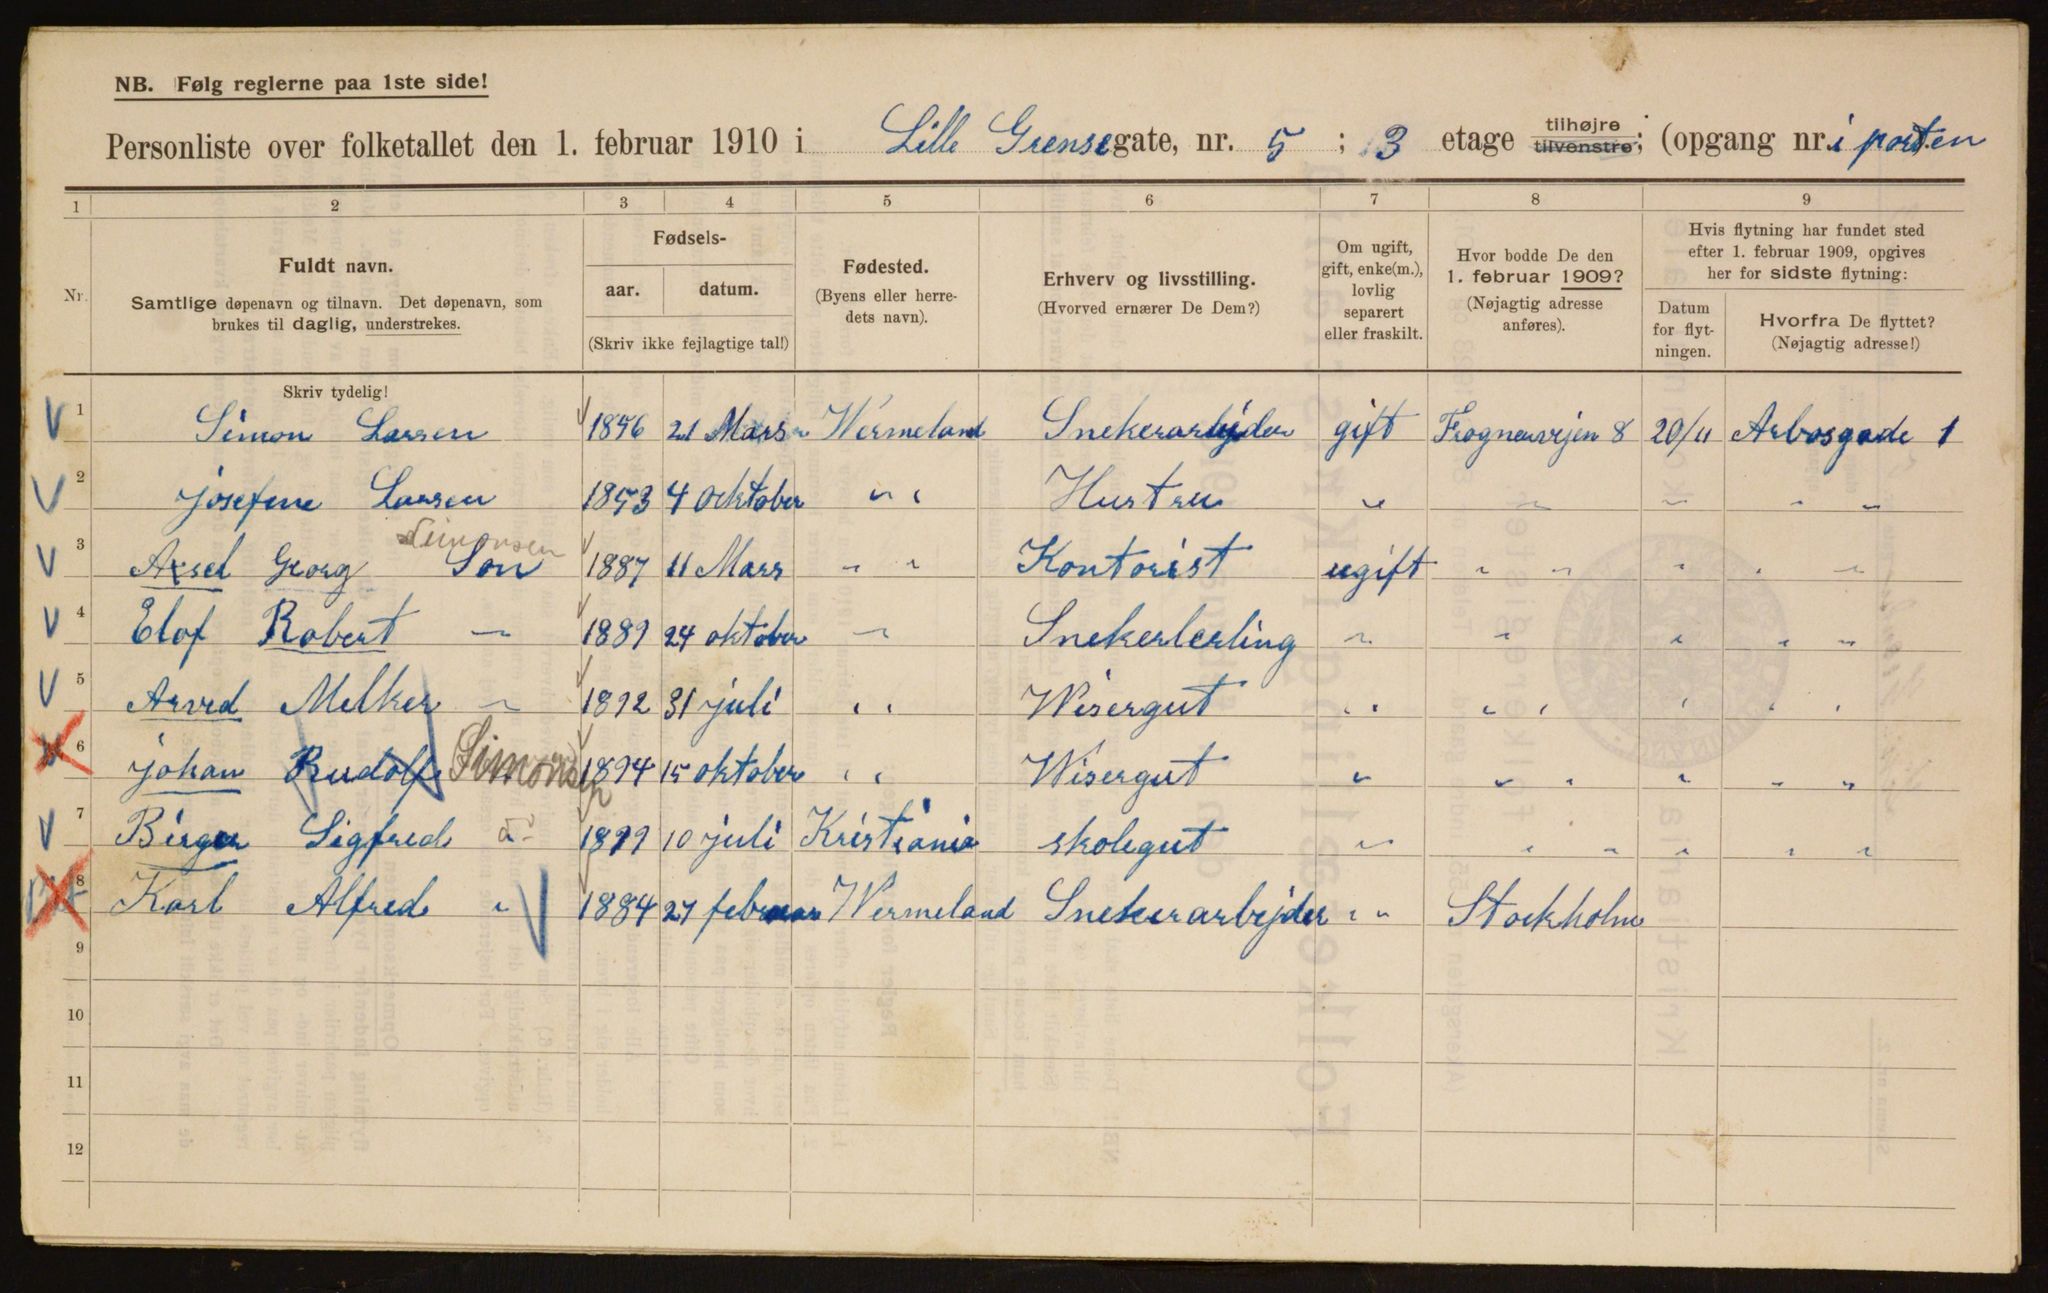 NB. Følg reglerne paa 1ste side!
Personliste over folketallet den 1. februar 1910 i Lille Grensegate, nr. 5 ; 3 etage tilhøjre tilvenstre; (opgang nr. i porten
1 2 3 4 5 6 7 8 9
Nr. Fuldt navn. Samtlige døpenavn og tilnavn. Det døpenavn, som brukes til daglig, understrekes.
Fødsels- aar. datum. (Skriv ikke fejlagtige tal!)
Fødested. (Byens eller herredets navn).
Erhverv og livsstilling. (Hvorved ernærer De Dem?)
Om ugift, gift, enke(m.), lovlig separert eller fraskilt.
Hvor bodde De den 1. februar 1909? (Nøjagtig adresse anføres).
Hvis flytning har fundet sted efter 1. februar 1909, opgives her for sidste flytning:
Datum for flytningen. Hvorfra De flyttet? (Nøjagtig adresse!)
Skriv tydelig!
1 Simon Larsen 1856 21 Mars Wermeland Snekerarbejder gift Frognervejen 8 20/11 Arbosgade 1
2 Josefine Larsen 1853 4 Oktober " " Hustru " " " " "
3 Axsel Georg Søn Simonsen 1887 11 Mars " " Kontorist ugift " " " " "
4 Elof Robert " 1889 24 oktober " Snekerlerling " " " " "
5 Arvid Melker " 1892 31 juli " " Wisergut " " " " " " "
6 Johan Rudolf Simonsen 1894 15 oktober " " Wisergut " " " " " "
7 Birger Sigfred " 1899 10 juli Kristiania skolegut " " " " " "
8 Karl Alfred " 1884 27 februar Wermeland Snekerarbejder " " Stockholm
9
10
11
12